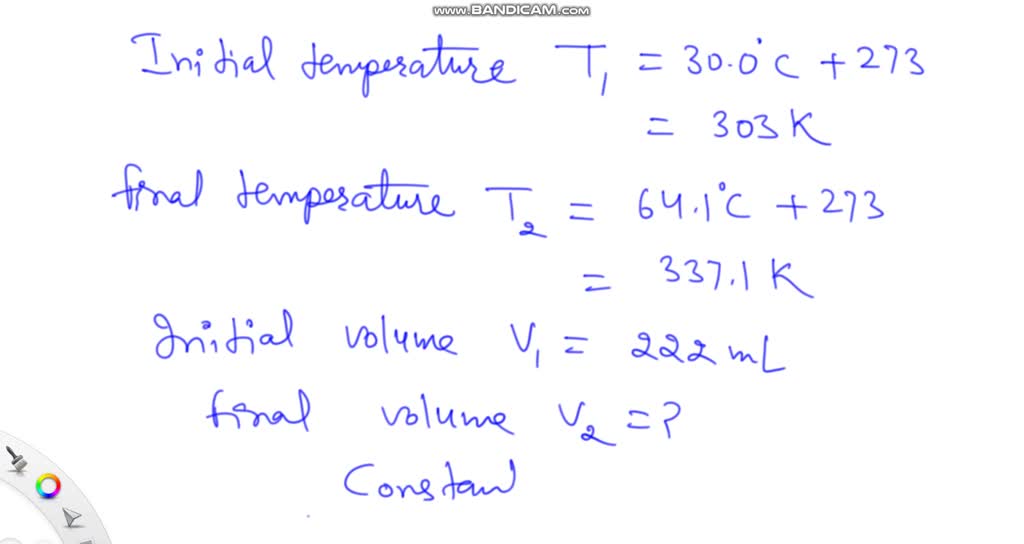 www.BANDICAM.com
Initial temperature T₁ = 30.0°C + 273
= 303 K
final temperature T₂ = 64.1°C + 273
= 337.1 K
Initial volume V₁ = 222 mL
final volume V₂ = ?
Constan